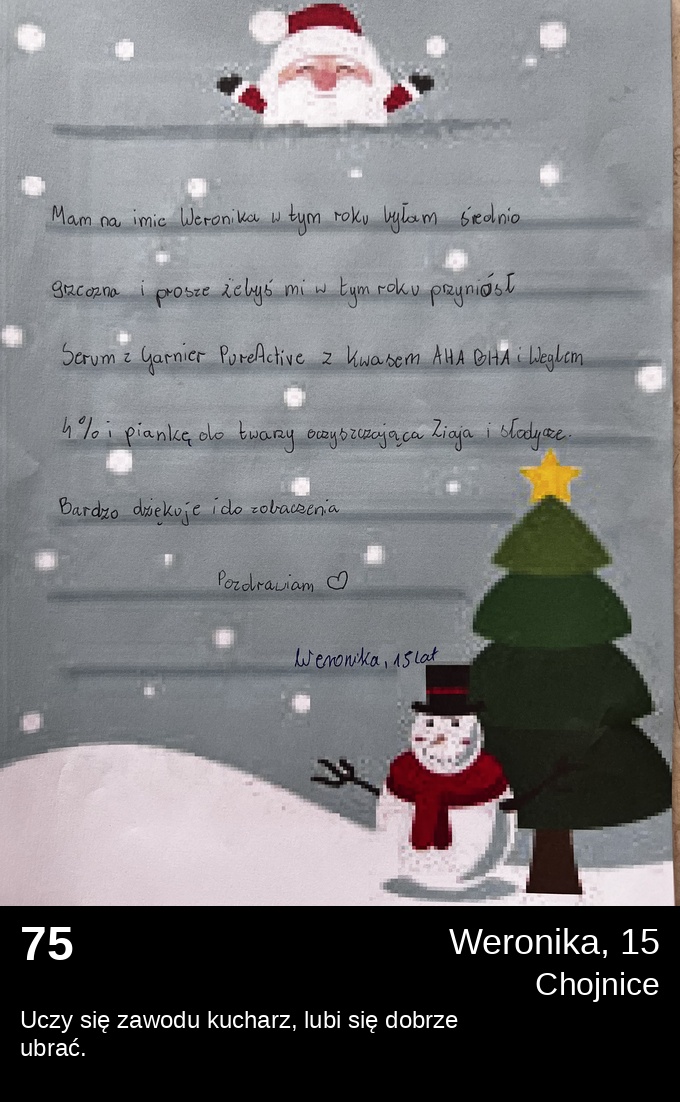 Mam na imie Weronika w tym roku byłam średnio
grzeczna i prosze żebyś mi w tym roku przyniósł
Serum z Garnier PureActive z kwasem AHA BHA i Węglem
4% i piankę do twarzy oczyszczająca Ziaja i słodycze.
Bardzo dziękuje i do zobaczenia
Pozdrawiam ♡
Weronika, 15 lat
75
Weronika, 15
Chojnice
Uczy się zawodu kucharz, lubi się dobrze
ubrać.